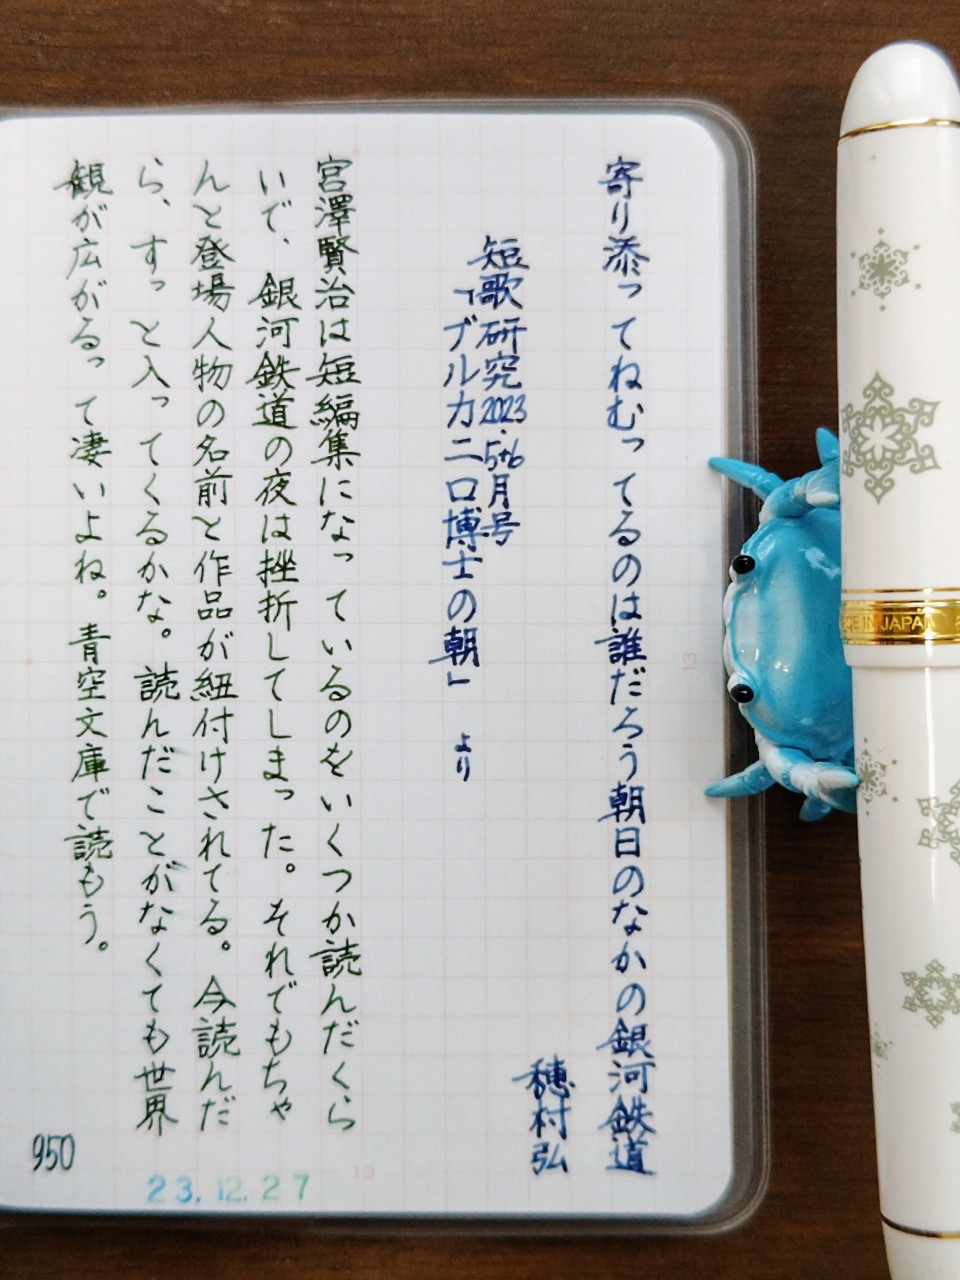 寄り添ってねむってるのは誰だろう朝日のなかの銀河鉄道
穂村弘
短歌研究2023.5+6月号
「ブルカニロ博士の朝」 より
宮澤賢治は短編集になっているのをいくつか読んだくら
いで、銀河鉄道の夜は挫折してしまった。それでもちゃ
んと登場人物の名前と作品が紐付けされてる。今読んだ
ら、すっと入ってくるかな。読んだことがなくても世界
観が広がるって凄いよね。青空文庫で読もう。
950
23.12.27
13
13
MADE IN JAPAN